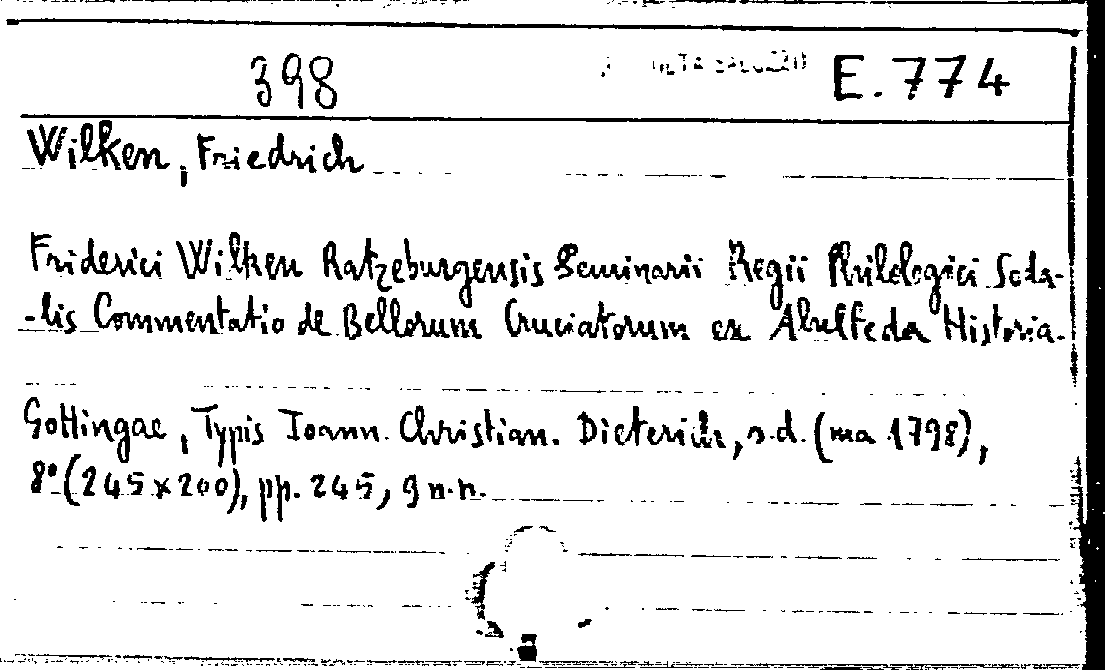 398 E.774
Wilken, Friedrich
Friderici Wilken Ratzeburgensis Seminarii Regii Philologici Soda-
-lis Commentatio de Bellorum Cruciatorum ex Abulfeda Historia.
Gottingae, Typis Joann. Christian. Dieterich, s.d. (ma 1798),
8° (245 x 200), pp. 245, 9 n.n.